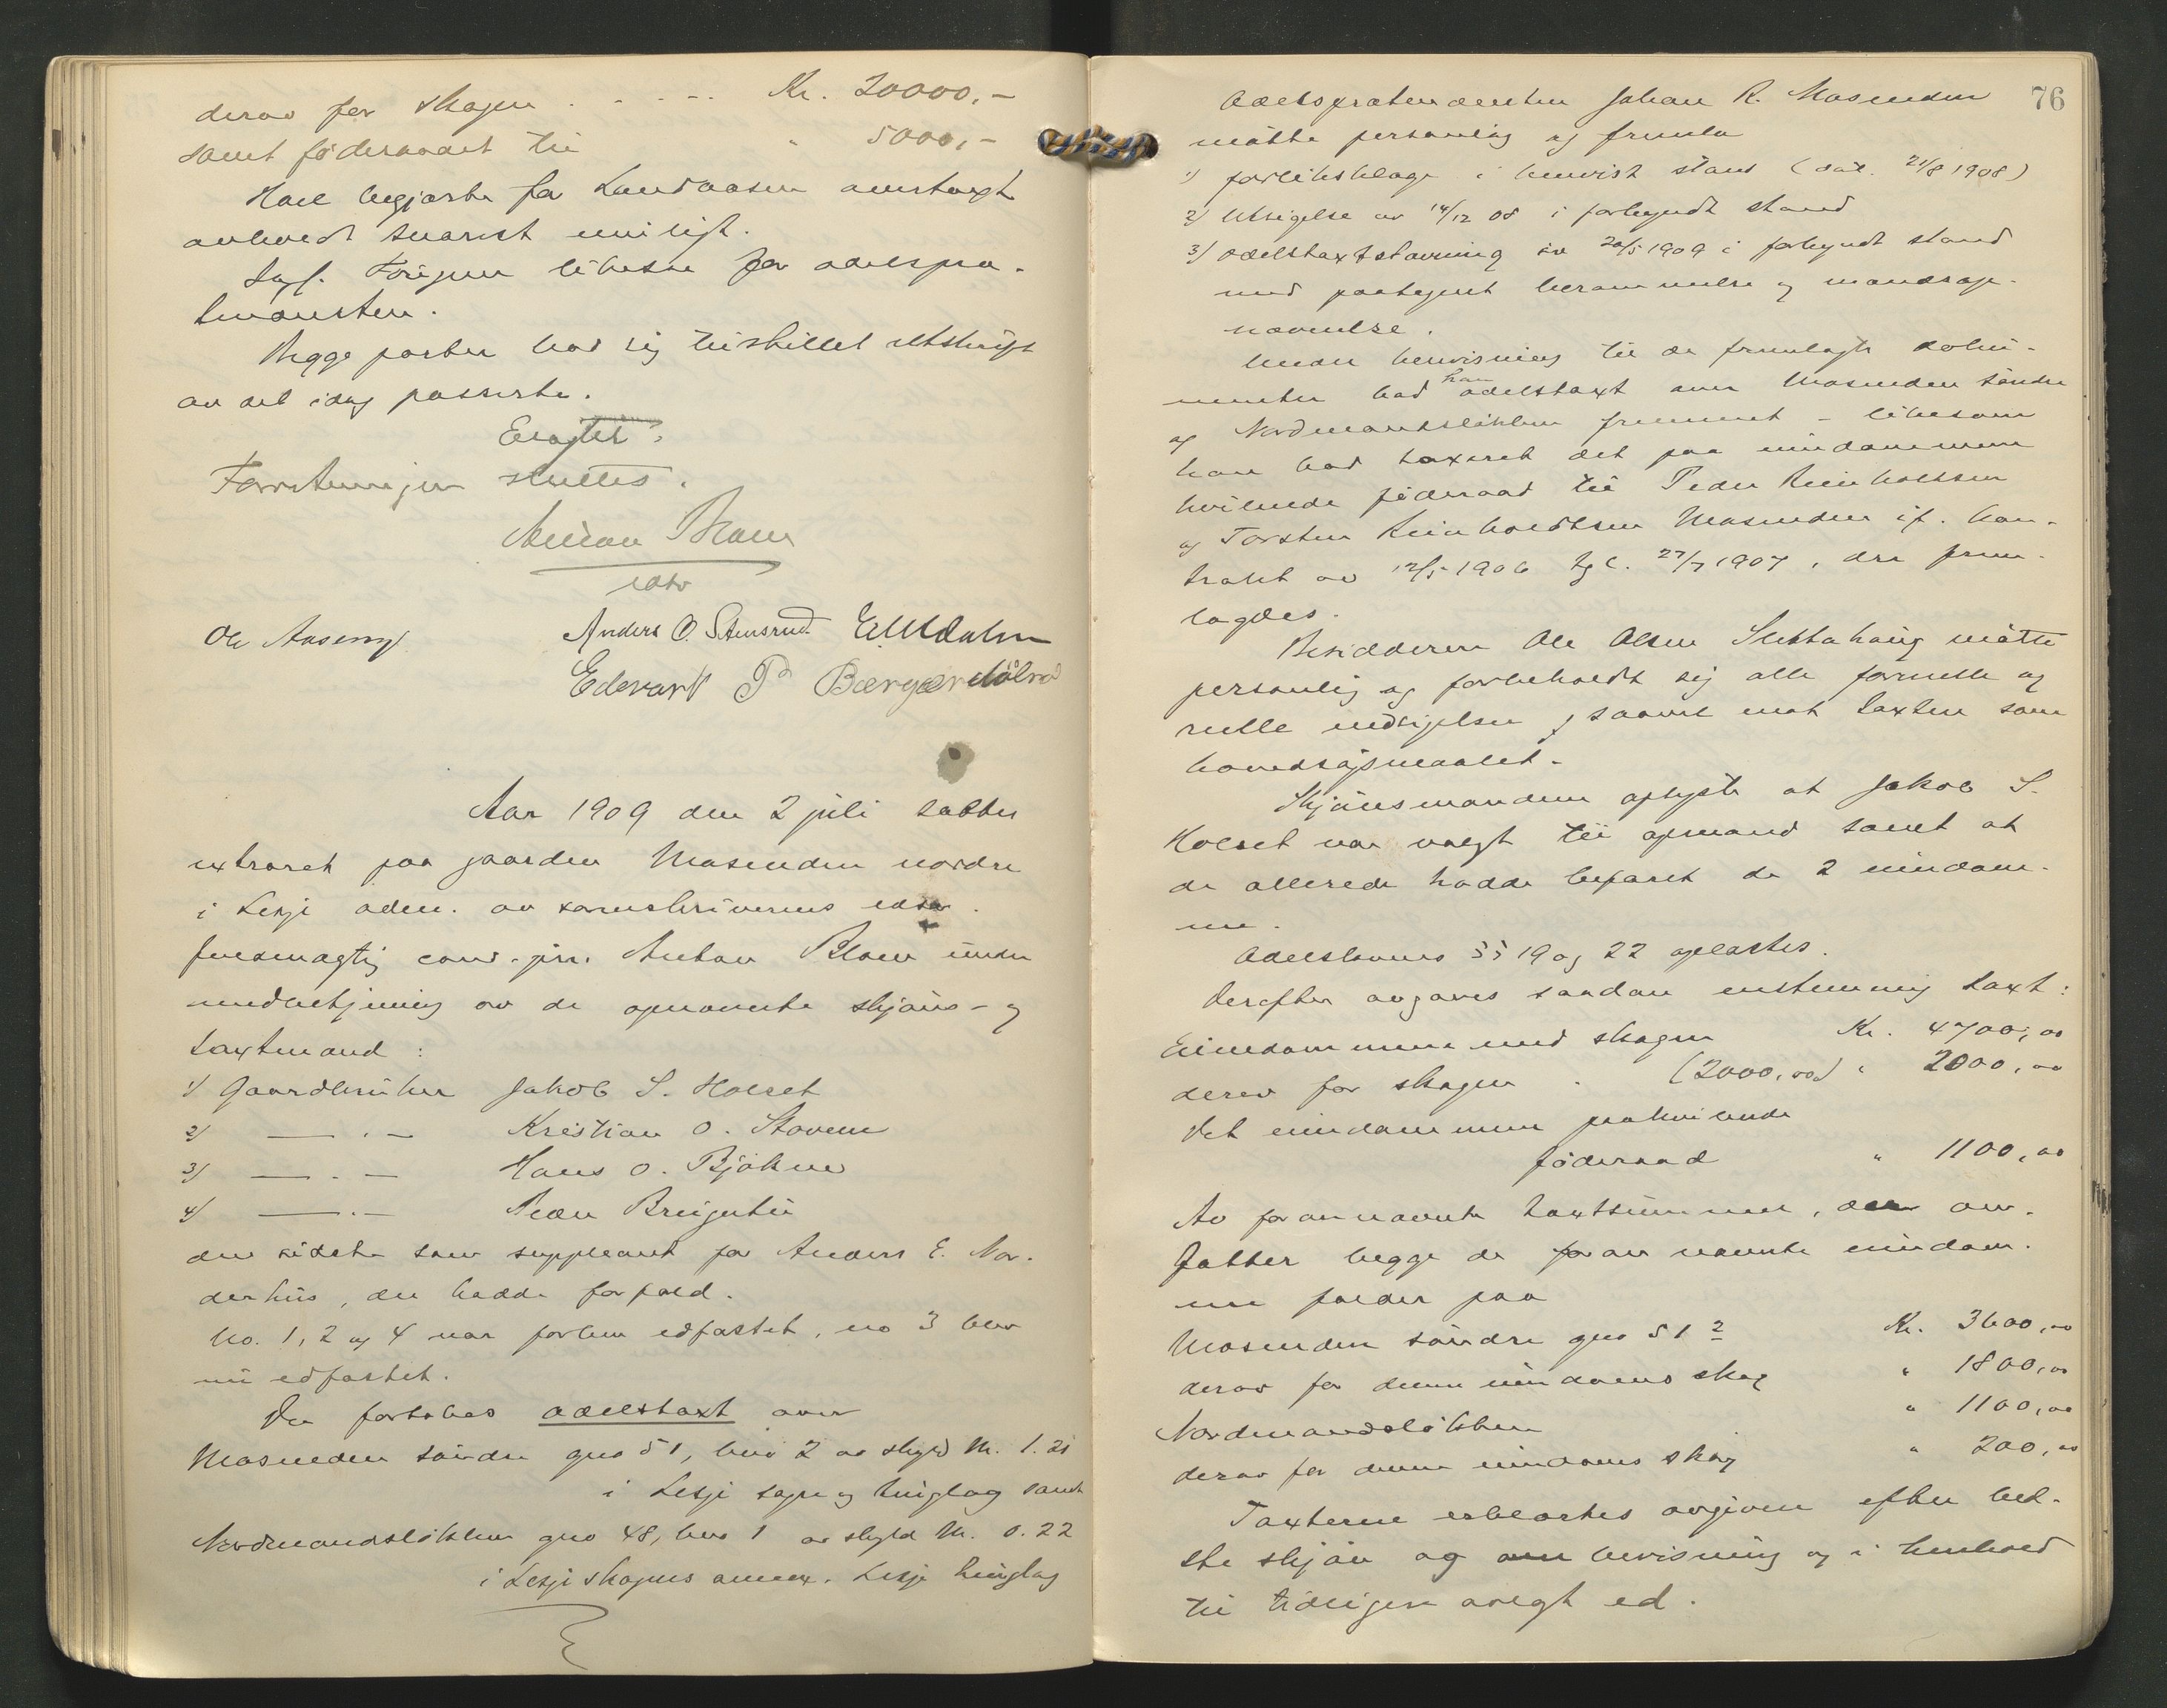 derav for skogen . . . . . Kr. 20000,-
samt föderaadet til " 5000,-
begjærte for overtaxt
avholdt snarest muligt.
Sagf. likesaa for odelspræ-
tendenten.
Begge parter bad sig tilstillet utskrift
av det idag passerte.
Forretningen sluttes.
Anton Blom
edsv
Ole Aaseng Anders O. Stensrud
Edevart P
Aar 1909 den 2 juli sattes
extraret paa gaarden Mosenden nordre
i Lesje adm. av sorenskriverens edsv.
fuldmægtig cand. jur. Anton Blom under
medbetjening av de opnævnte skjöns- og
taxtmænd:
1) Gaardbruker Jakob S. Holset
2) — . — Kristian O. Stavem
3) — . — Hans O. Bjökne
4) — . — Peder
den sidste som suppleant for Anders E. Nor-
derhus, der hadde forfald.
No. 1, 2 og 4 var forhen edfæstet, no 3 blev
nu edfæstet.
Der foretokes odelstaxt over
Mosenden söndre gno 51, bno 2 av skyld M. 1.21
i Lesje sogn og tinglag samt
Nordmandslökken gno 48, bno 1 av skyld M. 0.22
i Lesjeskogens annex. Lesje tinglag
76
Odelsprætendenten Johan R. Mosenden
mötte personlig og fremla
1) forliksklage i henvist stand (dat. 21/8 1908)
2) Utsigelse av 14/12 08 i forkyndt stand
3) Odelstaxtstævning av 20/5 1909 i forkyndt stand
med paategnet berammelse og mandsop-
nævnelse.
Under henvisning til de fremlagte doku-
menter bad han odelstaxt over Mosenden söndre
og Nordmandslökken fremmet - likesom
han bad taxeret det paa eiendommene
hvilende föderaad til Peder Reinholdtsen
og Torsten Reinholdtsen Mosenden if. kon-
trakt av 12/5 1906 tgl. 27/7 1907, der frem-
lagdes.
Besidderen Ole Olsen Slettahaug mötte
personlig og forbeholdt sig alle formelle og
reelle indsigelser saavel mot taxten som
hovedsöksmaalet.
Skjönsmændene oplyste at Jakob S.
Holset var valgt til opmand samt at
de allerede hadde befaret de 2 eiendom-
me.
Odelslovens §§ 19 og 22 oplæstes.
Derefter avgaves saadan enstemmig taxt:
Eiendommene med skogen Kr. 4700,00
derav for skogen . (2000,00) " 2000,00
Det eiendommene paahvilende
föderaad " 1100,00
Av forannævnte taxtsummer, der om-
fatter begge de foran nævnte eiendom-
me falder paa
Mosenden söndre gno 51 2 Kr. 3600,00
derav for denne eiendoms skog " 1800,00
Nordmandslökken " 1100,00
derav for denne eiendoms skog " 200,00
Taxterne erklærtes avgivne efter bed-
ste skjön og overbevisning og i henhold
til tidligere avlagt ed.